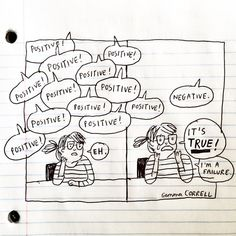 POSITIVE!
POSITIVE!
POSITIVE!
POSITIVE!
POSITIVE!
POSITIVE!
POSITIVE!
POSITIVE!
POSITIVE!
POSITIVE!
POSITIVE!
POSITIVE!
EH.
NEGATIVE.
IT'S
TRUE!
I'M A
FAILURE.
Gemma CORRELL